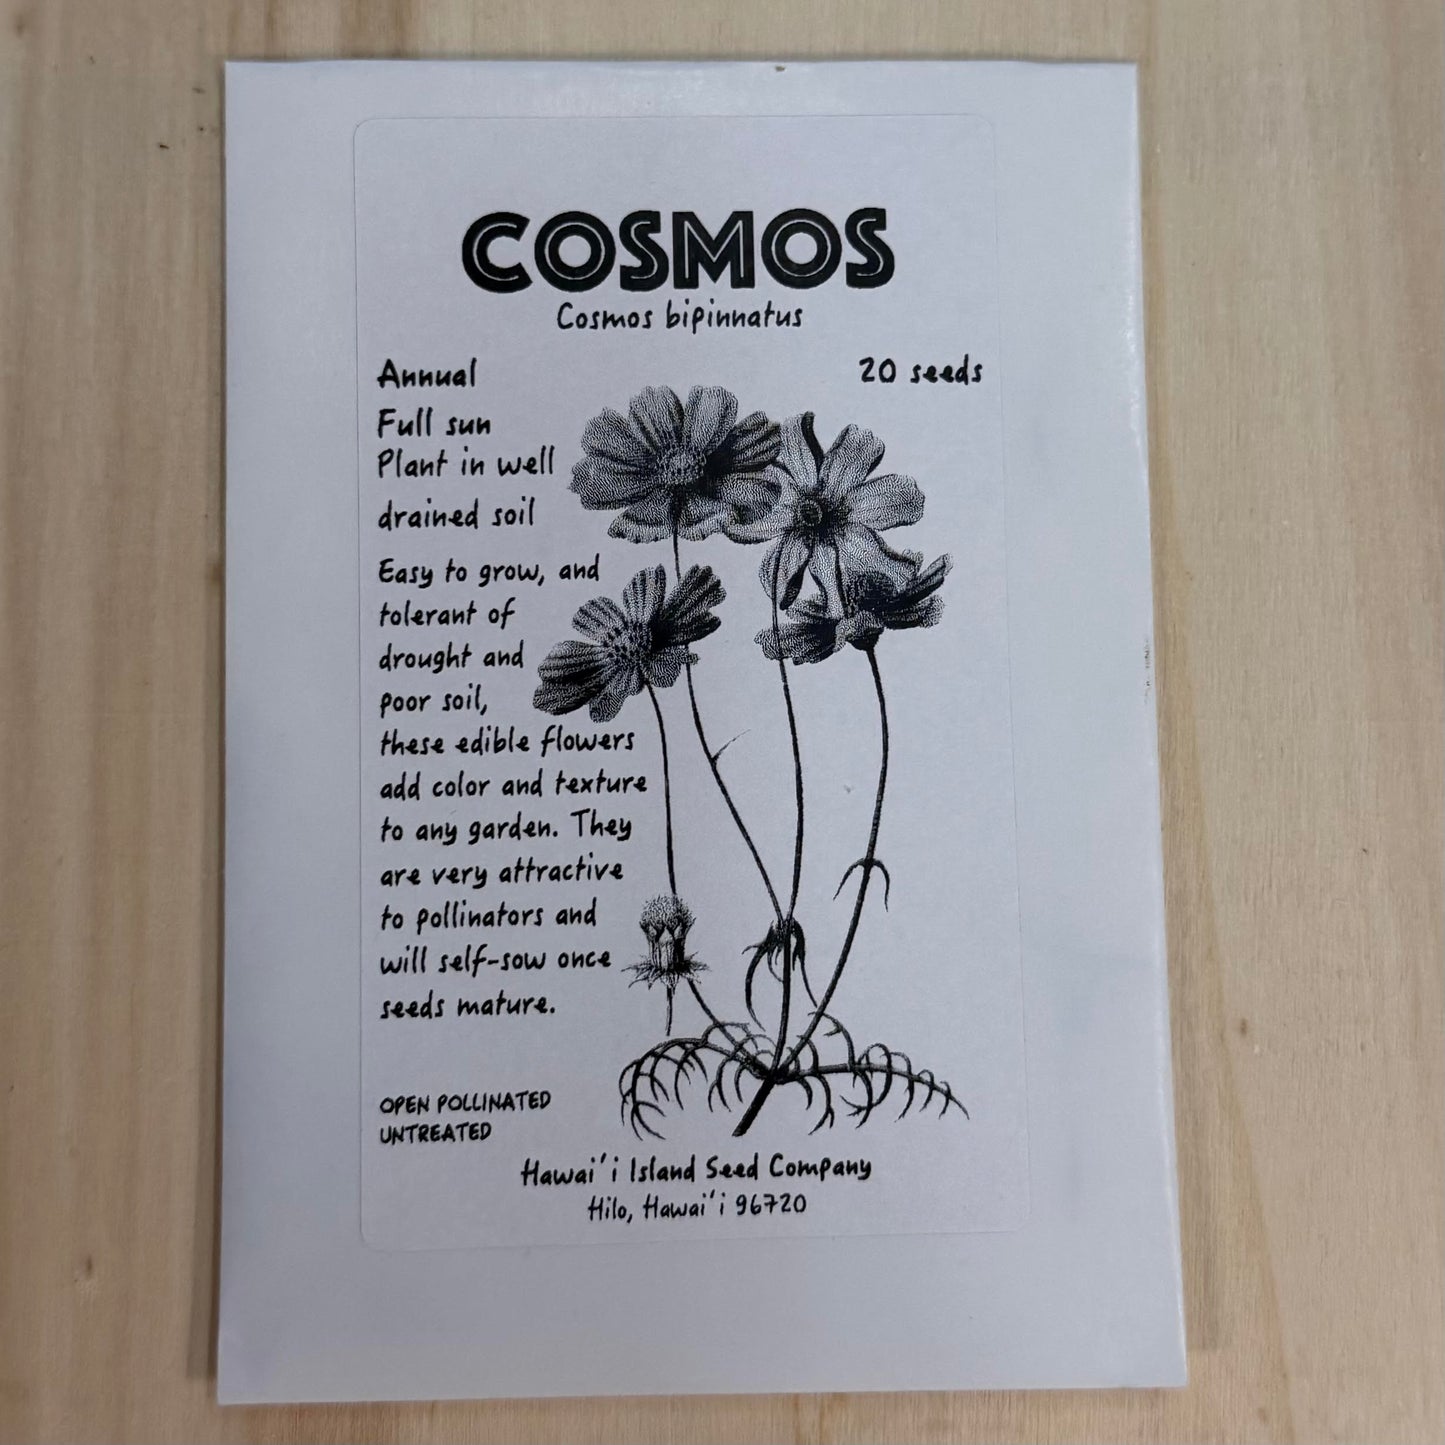 COSMOS
Cosmos bipinnatus
Annual
20 seeds
Full sun
Plant in well
drained soil
Easy to grow, and
tolerant of
drought and
poor soil,
these edible flowers
add color and texture
to any garden. They
are very attractive
to pollinators and
will self-sow once
seeds mature.
OPEN POLLINATED
UNTREATED
Hawai'i Island Seed Company
Hilo, Hawai'i 96720